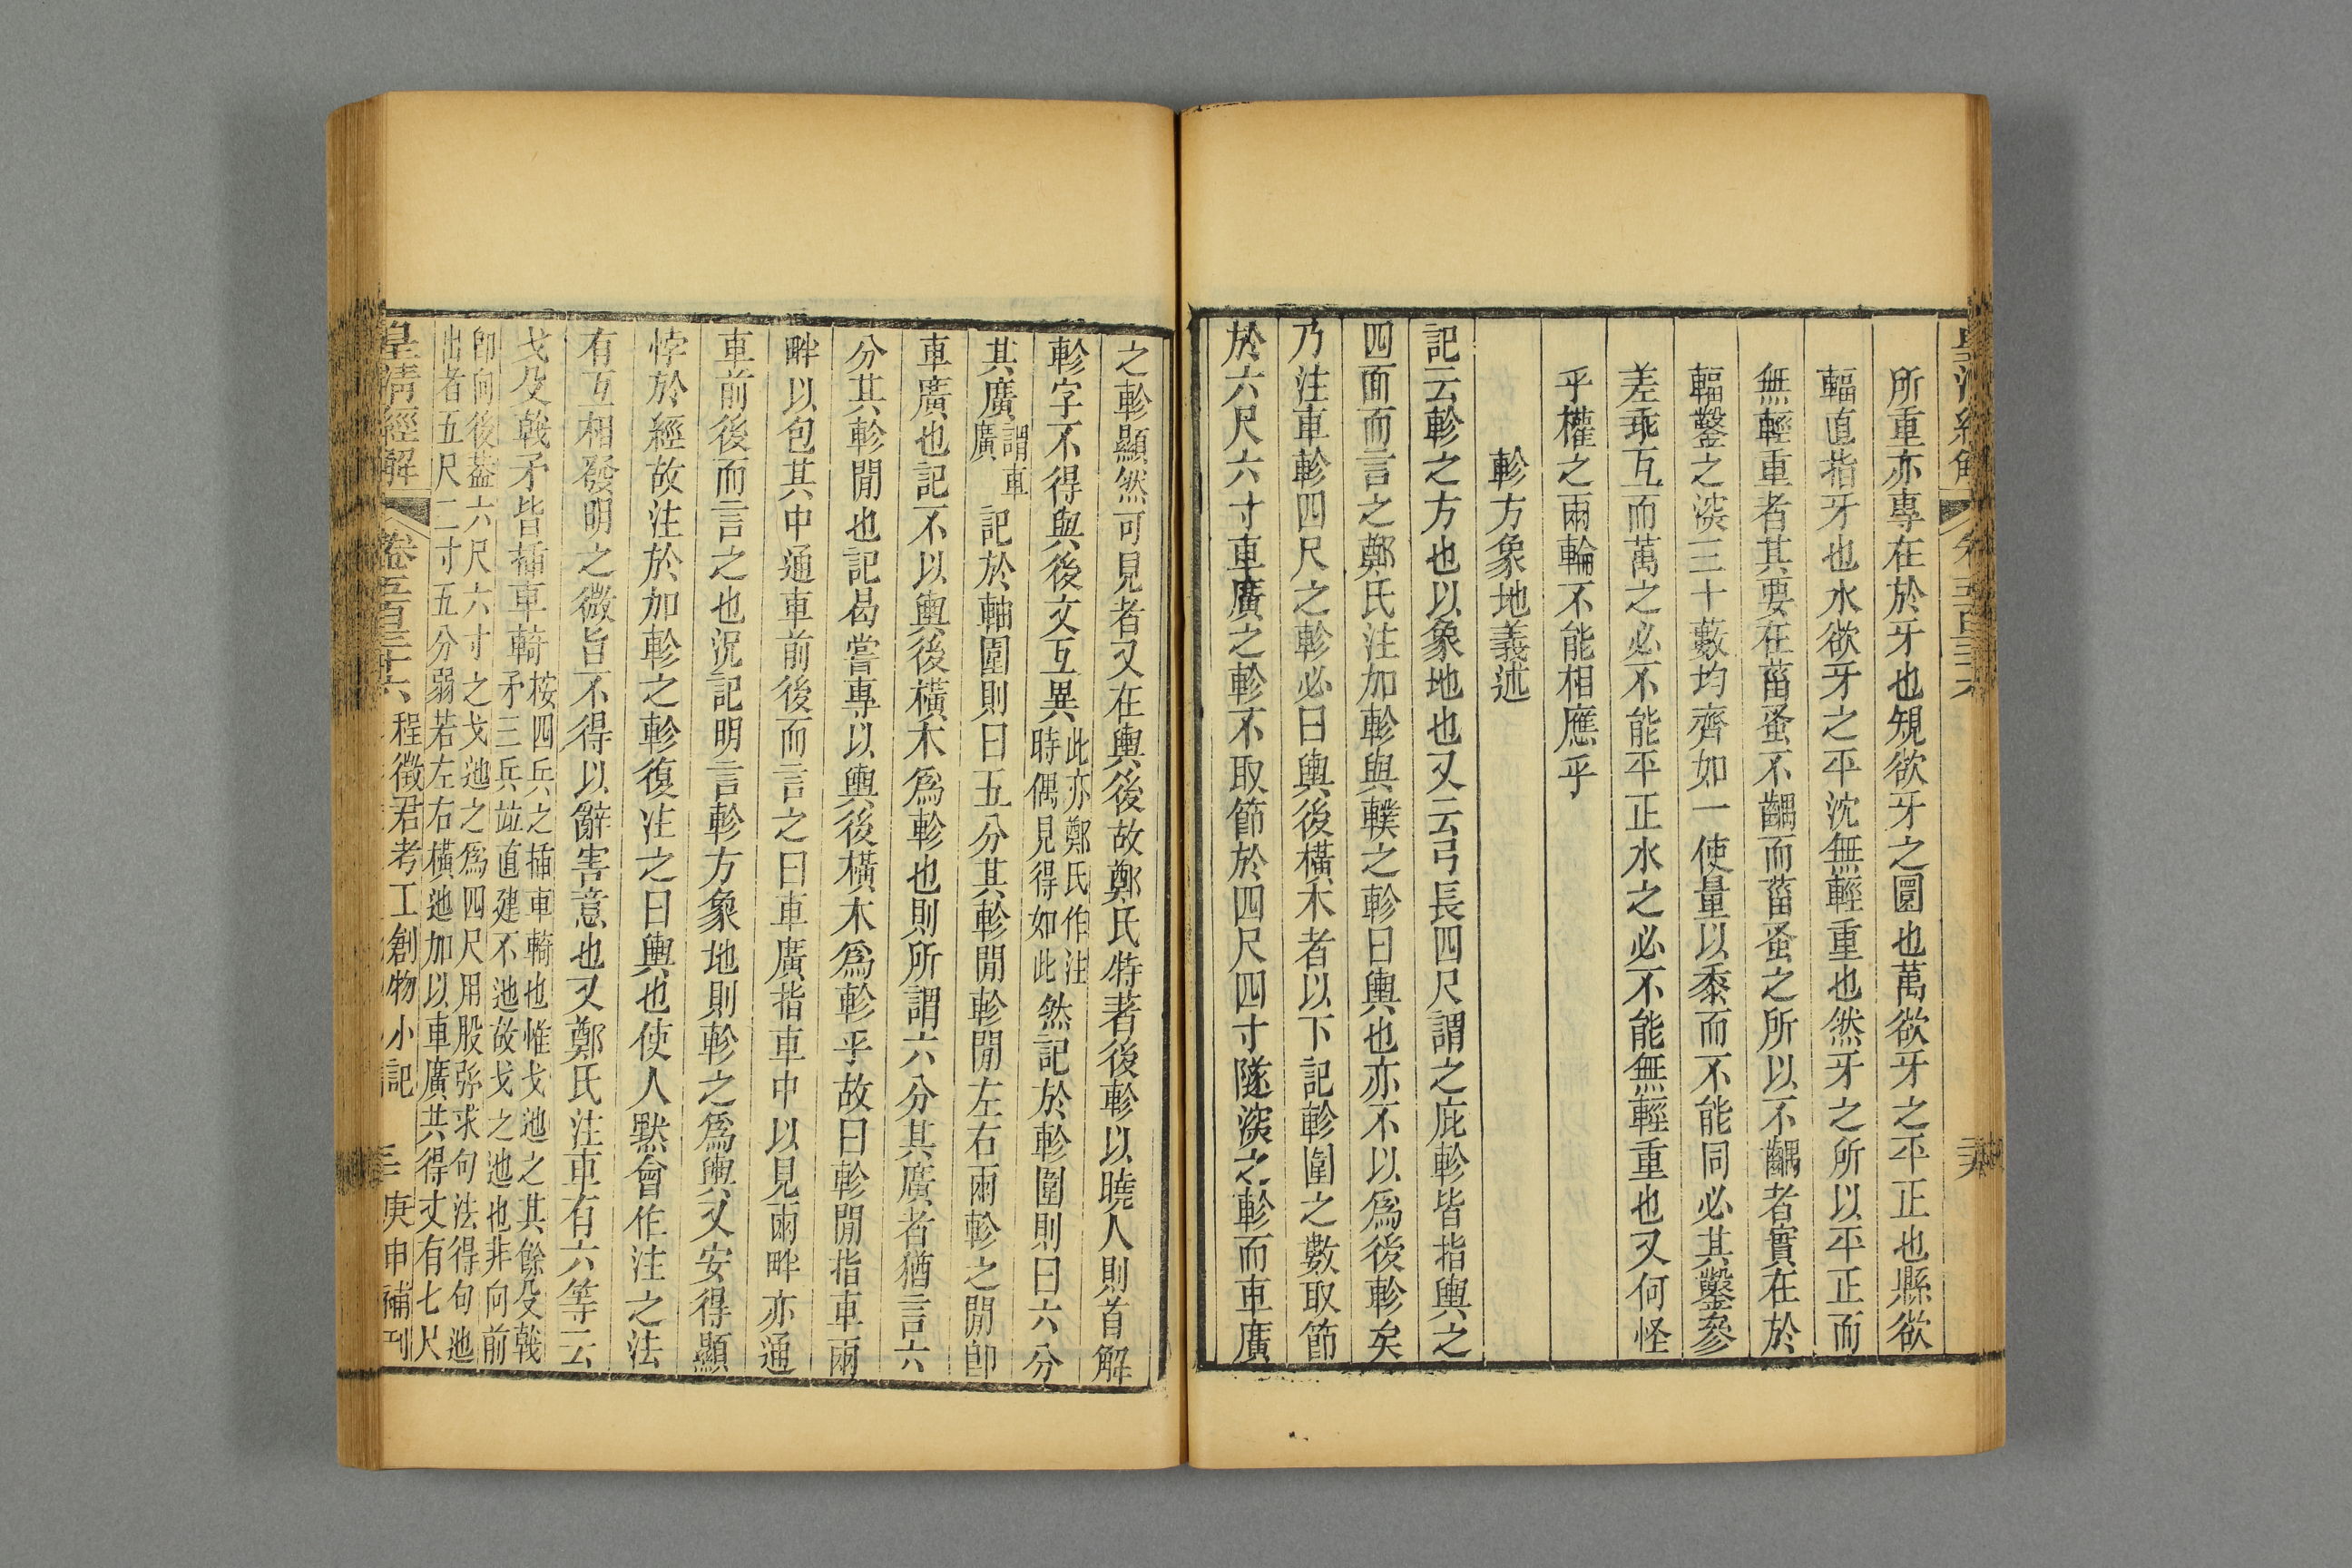 所重亦專在於牙也規欲牙之圜也萬欲牙之平正也縣欲
輻直指牙也水欲牙之平沈無輕重也然牙之所以平正而
無輕重者其要在菑蚤不齵而菑蚤之所以不齵者實在於
輻鑿之深三十藪均齊如一使量以黍而不能同必其鑿參
差乖互而萬之必不能平正水之必不能無輕重也又何怪
乎權之兩輪不能相應乎
軫方象地義述
記云軫之方也以象地也又云弓長四尺謂之庇軫皆指輿之
四面而言之鄭氏注加軫與轐之軫曰輿也亦不以爲後軫矣
乃注車軫四尺之軫必曰輿後橫木者以下記軫圍之數取節
於六尺六寸車廣之軫不取節於四尺四寸隧深之軫而車廣
之軫顯然可見者又在輿後故鄭氏特著後軫以曉人則首解
軫字不得與後文互異此亦鄭氏作注時偶見得如此然記於軫圍則曰六分
其廣謂車廣記於軸圍則曰五分其軫閒軫閒左右兩軫之閒卽
車廣也記不以輿後橫木爲軫也則所謂六分其廣者猶言六
分其軫閒也記曷嘗專以輿後橫木爲軫乎故曰軫閒指車兩
畔以包其中通車前後而言之曰車廣指車中以見兩畔亦通
車前後而言之也況記明言軫方象地則軫之爲輿又安得顯
悖於經故注於加軫之軫復注之曰輿也使人默會作注之法
有互相發明之微旨不得以辭害意也又鄭氏注車有六等云
戈殳戟矛皆插車輢桉四兵之插車輢也惟戈迆之其餘殳戟矛三兵竝直建不迆故戈之迆也非向前
卽向後葢六尺六寸之戈迆之爲四尺用股弥求句法得句迆出者五尺二寸五分弱若左右橫迆加以車廣共得丈有七尺
皇清經解 卷五百三十六 程徵君考工創物小記 三 庚申補刊